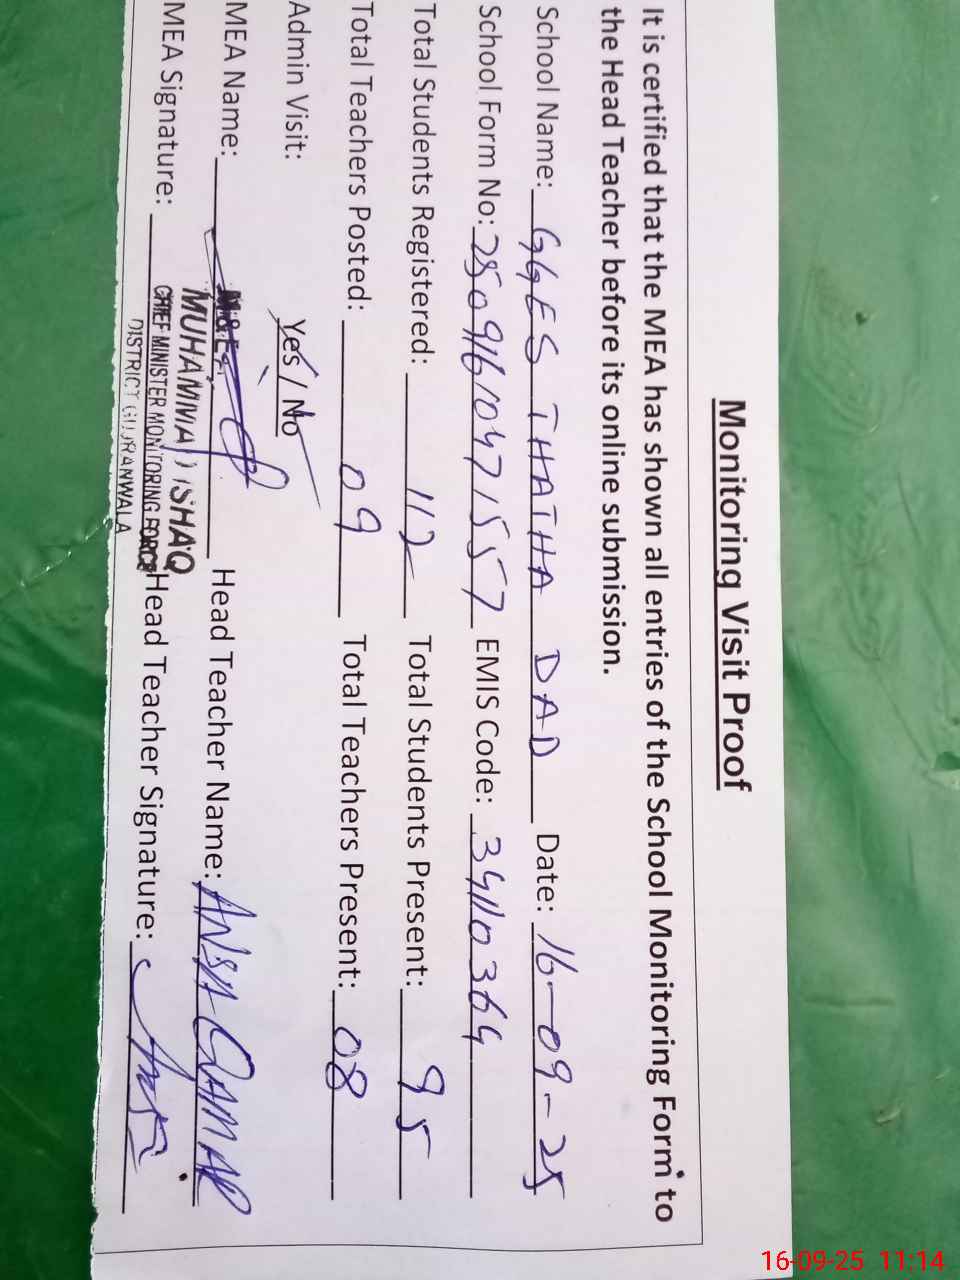 Monitoring Visit Proof
It is certified that the MEA has shown all entries of the School Monitoring Form to
the Head Teacher before its online submission.
School Name: GGES THATHA DAD Date: 16-09-25
School Form No: 25091610471557 EMIS Code: 34110364
Total Students Registered: 112 Total Students Present: 95
Total Teachers Posted: 09 Total Teachers Present: 08
Admin Visit: Yes / No
MEA Name: Head Teacher Name: ANSA QAMAR
MUHAMMAD ISHAQ
MEA Signature: Head Teacher Signature:
CHIEF MINISTER MONITORING FORCE
DISTRICT GUJRANWALA
16-09-25 11:14